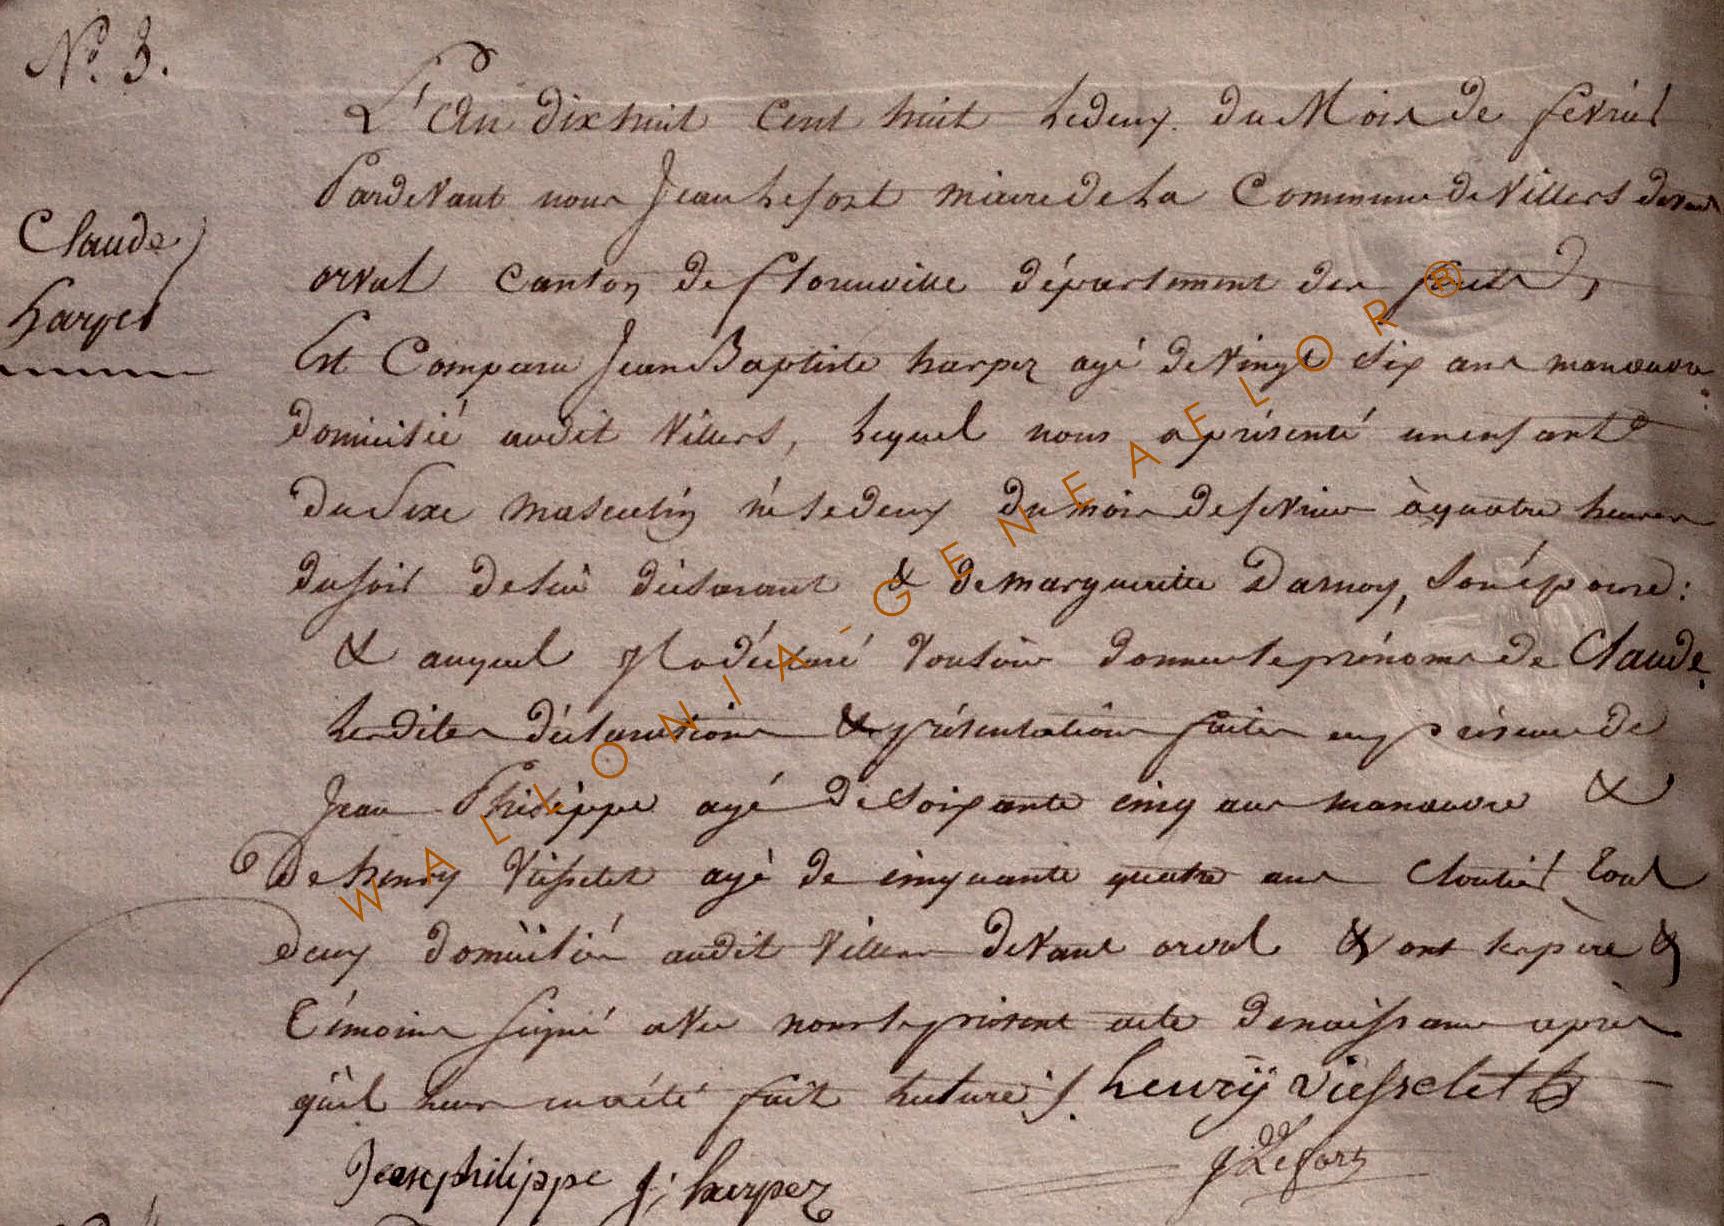 N.° 3.
L'An dix huit cent huit le deux du Mois de fevrier
Pardevant nous Jean Lefort maire de la Commune de Villers devant
orval canton de florenville département des forets,
Est Comparu Jean Baptiste harpez agé de vingt six ans manœuvre
Claude
harpez
domicilié audit Villers, lequel nous a présenté un enfant
du sexe masculin né le deux du mois de fevrier à quatre heures
du soir de lui déclarant & de margueritte Darnoy, son épouse:
& auquel il a déclaré vouloir donner le prénom de Claude.
Les dites déclaration & présentation faites en présence de
Jean Philippe agé de soixante cinq ans manœuvre &
De henry Viesselet agé de cinquante quatre ans Cloutier, tout
deux domicilié audit Villers devant orval & ont le père &
témoins signé avec nous le présent acte de naissance après
qu'il leur en a été fait lecture ./. henrÿ viesselet
Jean philippe J: harpez J Lefort
WALLONIA-GENEAFLOR®